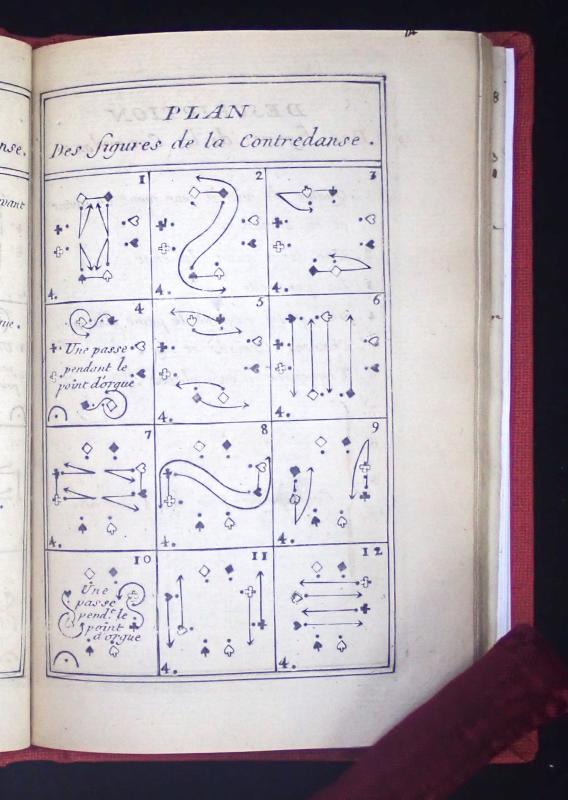 PLAN
Des figures de la Contredanse.
1
2
3
4.
4
5
6
Une passe
pendant le
point d'orgue
4.
4.
7
8
9
4.
4.
4.
10
11
12
Une
passe
pend.t le
point
d'orgue
4.
4.